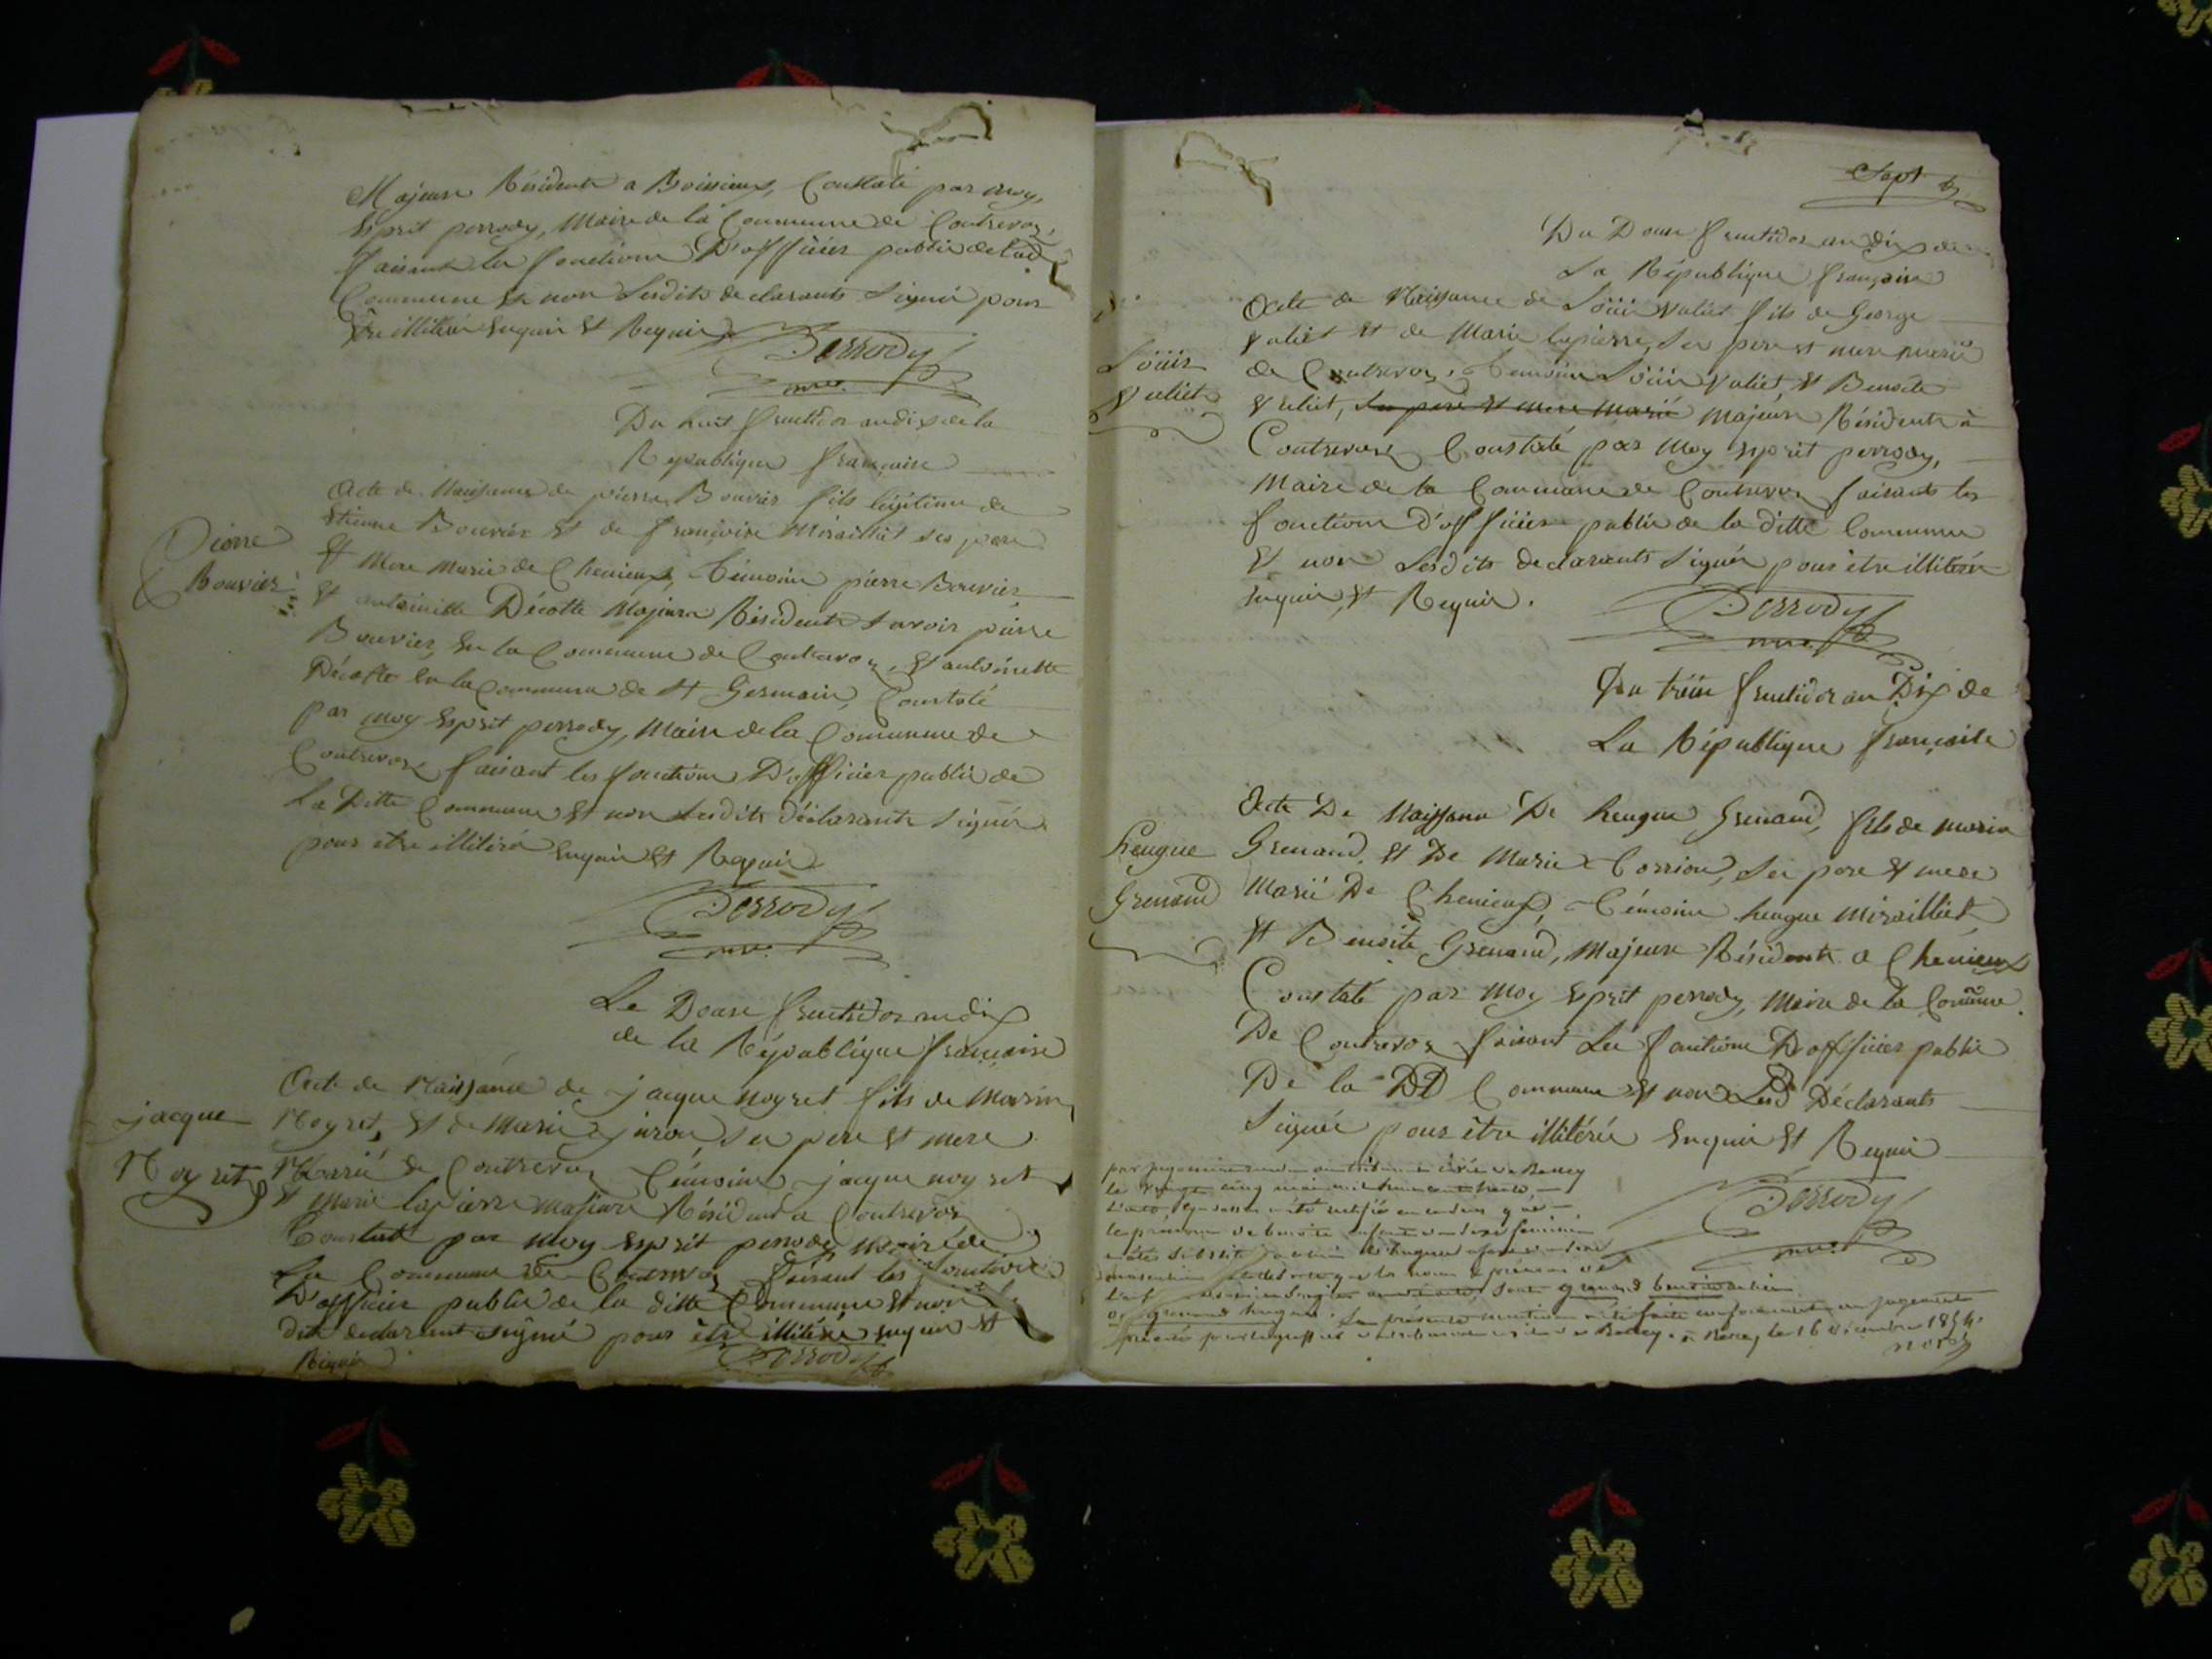 Majeurs Résidents a Boissieux, Constaté par moy,
Esprit perrody, Maire de la Commune de Contrevoz,
faisant les fonctions D'officier public de lad
Commune et non Lesdits declarants Signé pour
être illitéré Enquis et Requis
Perrody
mre.
Du huit fructidor an dix de la
République française
Pierre
Bouvier
Acte de Naissance de pierre Bouvier fils légitime de
Etienne Bouvier et de françoise Miraillet ses pere
et Mere Mariés de Chenieux, témoins pierre Bouvier
et antoinette Décotte Majeurs Résidents Savoir pierre
Bouvier, en la Commune de Contrevoz, et antoinette
Décotte en la Commune de St Germain, Constaté
par moy Esprit perrody, Maire de la Commune de
Contrevoz faisant les fonctions D'officier public de
La Ditte Commune et non Lesdits déclarants Signés
pour etre illitéré Enquis et Requis
Perrody
mre.
Le Douze fructidor an dix
de la République française
jacque
Noyret
Acte de Naissance de jacque noyret fils de Marin
Noyret, et de Marie juron, Ses pere et mere
Marié de Contrevoz témoins jacque noyret
et Marie lapierre majeurs Résidents a Contrevoz
Constaté par moy Esprit perrody maire de
La Commune de Contrevoz faisant les fonctions
D'officier public de la ditte Commune et non les
dits declarant signé pour être illitéré enquis et
Requis
Perrody
Sept
Du Douze fructidor an dix de
La République française
Loüis
Valiet
Acte de Naissance de Loüis Valiet fils de George
Valiet et de Marie lapierre, Ses pere et mere mariés
de Contrevoz, témoins Loüis Valiet, et Benoite
Valiet, Ses pere et mere marié Majeurs Résidents à
Contrevoz Constaté par moy Esprit perrody,
Maire de la Commune de Contrevoz faisants les
fonctions d'officier public de la ditte Commune
et non Lesdits declarants Signés pour être illitéré
Enquis, et Requis.
Perrody
mre.
Du treize fructidor an Dix de
La République française
heugue
Grenand
Acte De Naissance De heugue Grenand, fils de marin
Grenand, et De Marie Corrion, Ses pere et mere
Marié De Chenieux, témoins heugue Miraillet
et Benoite Grenand, Majeurs Résidents a Chenieux
Constaté par Moy Esprit perrody, Maire de la Commune
De Contrevoz faisant Les fonctions D'officier public
De la DD Commune et non Lesd Déclarants
Signée pour être illitérés Enquis et Requis
Perrody
mre.
par jugement rendu au tribunal civil de Belley
le vingt cinq mai mil huit cent trente,
L'acte ci dessus a été rectifié en ce sens que
le prénom de benoite enfant du sexe féminin
a été substitué à celui de hugues
masculin et que les noms et prénoms de
sont grenand benoite au lieu
de grenand hugues. La présente mention a été faite conformément au jugement
Belley, le 16 décembre 1854.